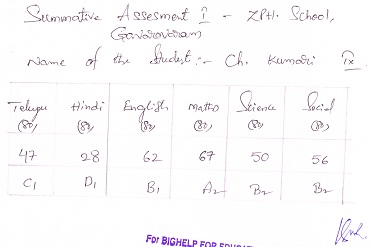 Summative Assesment I - ZPH. School,
Gavaravaram
Name of the Student :- Ch. Kumari IX
Telugu Hindi English Maths Science Social
(80) (80) (80) (80) (80) (80)
47 28 62 67 50 56
C1 D1 B1 A2 B2 B2
For BIGHELP FOR